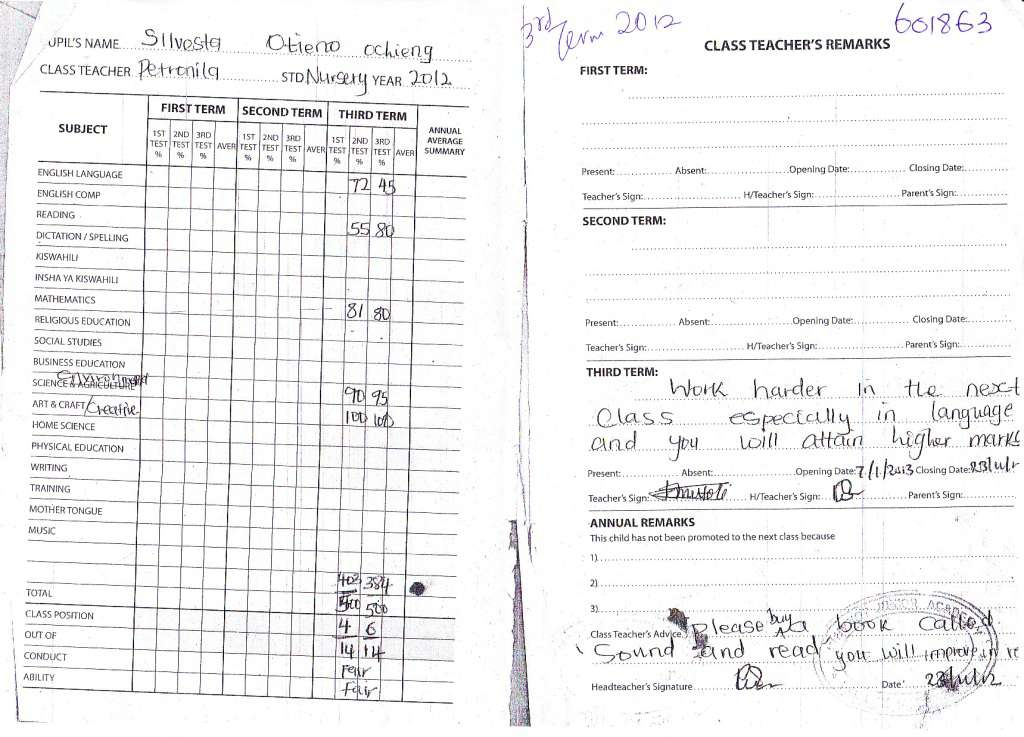 UPIL'S NAME Silvesta Otieno ochieng
CLASS TEACHER Petronila STD Nursery YEAR 2012
SUBJECT FIRST TERM SECOND TERM THIRD TERM ANNUAL AVERAGE SUMMARY
1ST TEST % 2ND TEST % 3RD TEST % AVER 1ST TEST % 2ND TEST % 3RD TEST % AVER 1ST TEST % 2ND TEST % 3RD TEST % AVER
ENGLISH LANGUAGE 72 45
ENGLISH COMP
READING
DICTATION / SPELLING 55 80
KISWAHILI
INSHA YA KISWAHILI
MATHEMATICS 81 80
RELIGIOUS EDUCATION
SOCIAL STUDIES
BUSINESS EDUCATION
SCIENCE & AGRICULTURE 90 95
ART & CRAFT/Creative 100 100
HOME SCIENCE
PHYSICAL EDUCATION
WRITING
TRAINING
MOTHER TONGUE
MUSIC
TOTAL 403 384
500 500
CLASS POSITION 4 6
OUT OF 14 14
CONDUCT Fair
ABILITY Fair
3rd Term 2012
601863
CLASS TEACHER'S REMARKS
FIRST TERM:
Present: Absent: Opening Date: Closing Date:
Teacher's Sign: H/Teacher's Sign: Parent's Sign:
SECOND TERM:
Present: Absent: Opening Date: Closing Date:
Teacher's Sign: H/Teacher's Sign: Parent's Sign:
THIRD TERM:
Work harder in the next
Class especially in language
and you will attain higher marks
Present: Absent: Opening Date: 7/1/2013 Closing Date:
Teacher's Sign: H/Teacher's Sign: Parent's Sign:
ANNUAL REMARKS
This child has not been promoted to the next class because
1)
2)
3)
Class Teacher's Advice Please buy a book called
Sound and read you will improve in re
Headteacher's Signature Date